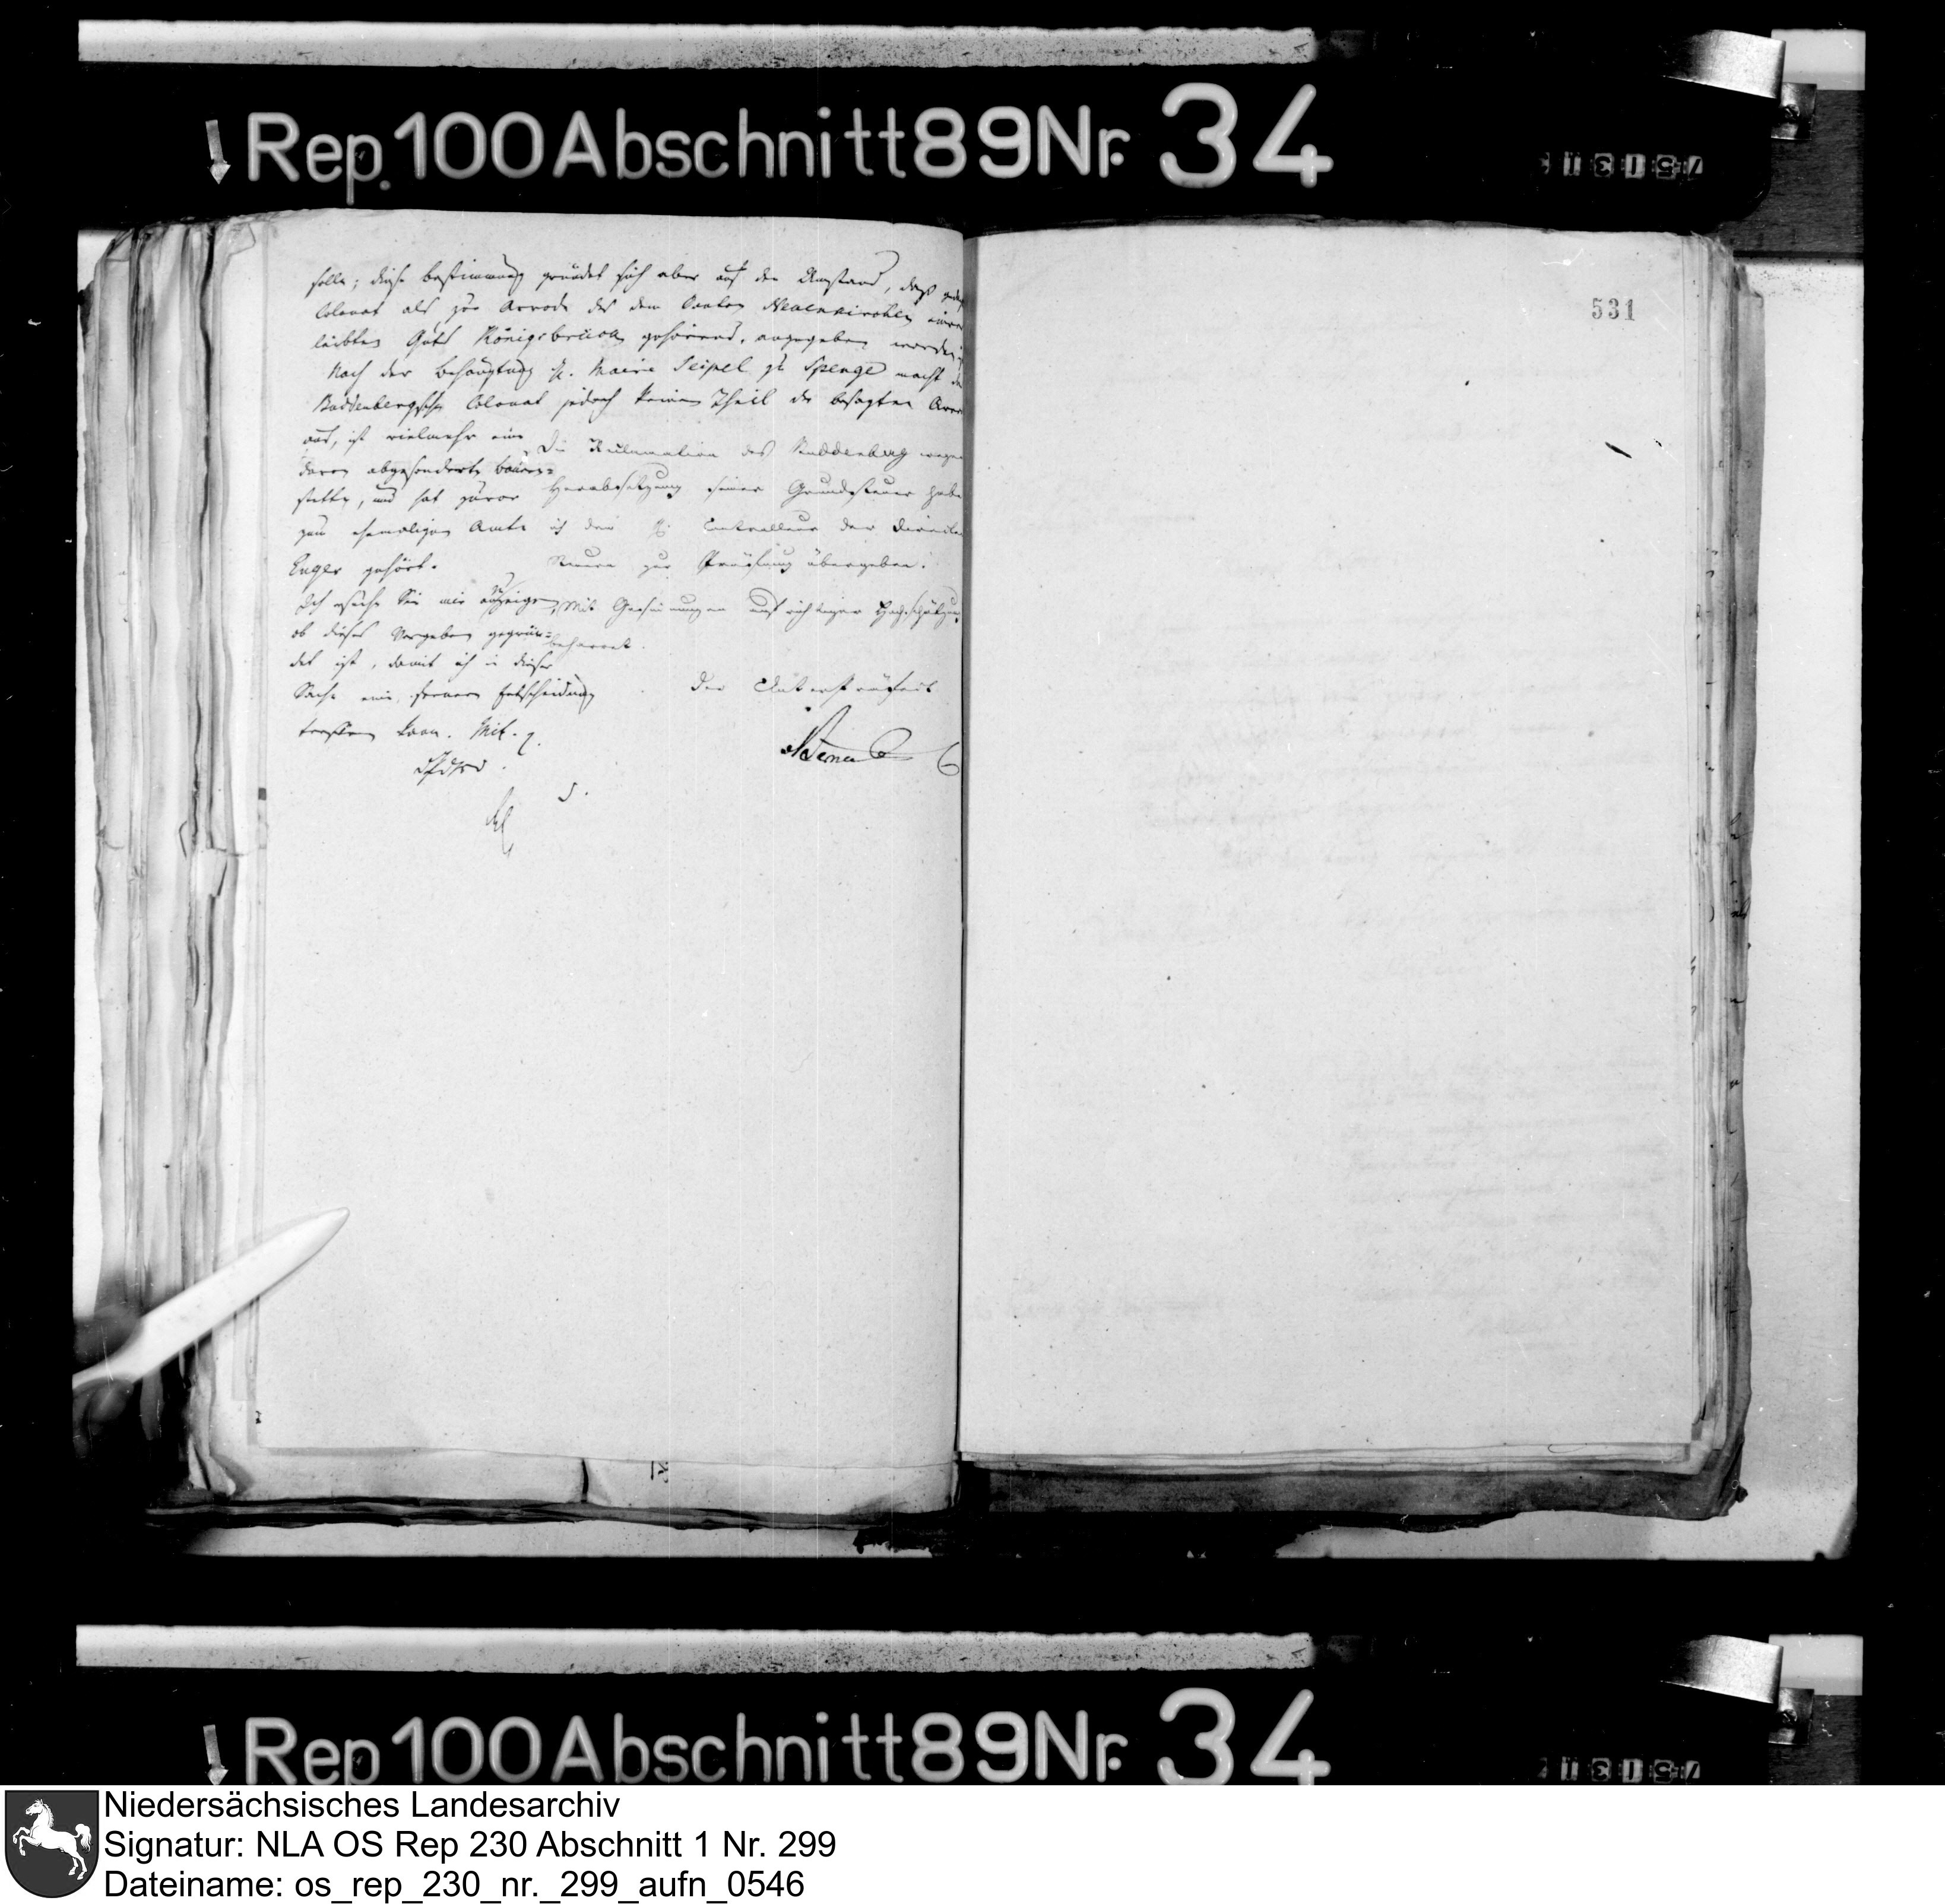 Rep. 100 Abschnitt 89 Nr. 34
531
solle; diese Bestimmung gründet sich aber auf den Umstand, daß
Colonat als zur Arrode des dem Canton Neuenkirchen
leibten Guts Königsbrück gehörend, angegeben worden
Nach der Behauptung H. Maire Seipel zu Spenge macht
Buddenbergsche Colonat jedoch keinen Theil der besagten
aus, ist vielmehr eine
davon abgesonderte Bauer=
stätte, und hat zuvor
zum ehemaligen Amte
Enger gehört.
Ich ersuche Sie mir anzuzeigen,
ob dieses Vorgeben gegrün=
det ist, damit ich in dieser
Sache eine fernere Entscheidung
treffen kann. Mit
Die Reclamation des Buddenberg wegen
Herabsetzung seiner Grundsteuer habe
ich dem H. Controlleur der
Steuern zur Prüfung übergeben.
Mit Gesinnungen aufrichtiger Hochschätzung
beharret.
Der Unterpräfect
Rep 100 Abschnitt 89 Nr. 34
Niedersächsisches Landesarchiv
Signatur: NLA OS Rep 230 Abschnitt 1 Nr. 299
Dateiname: os_rep_230_nr._299_aufn_0546